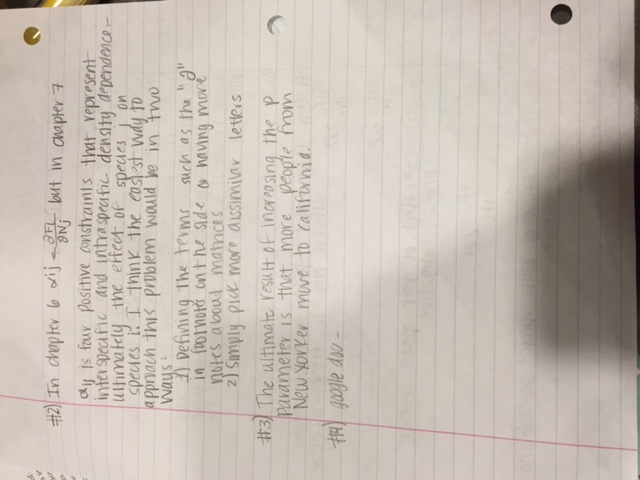 #2) In chapter 6 αij = ∂Fi/∂Nj but in chapter 7
αij is four positive constraints that represent
interspecific and intraspecific density dependence -
ultimately the effect of species j on
species i. I think the easiest way to
approach this problem would be in two
ways:
1) Defining the terms such as the "∂"
in footnotes on the side or having more
notes about matrices
2) Simply pick more dissimilar letters
#3) The ultimate result of increasing the p
parameter is that more people from
New Yorker move to California.
#4) google doc -